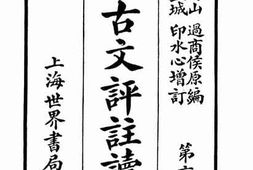 山 過商侯原編
城 印水心增訂
第
古文評註讀
上海世界書局